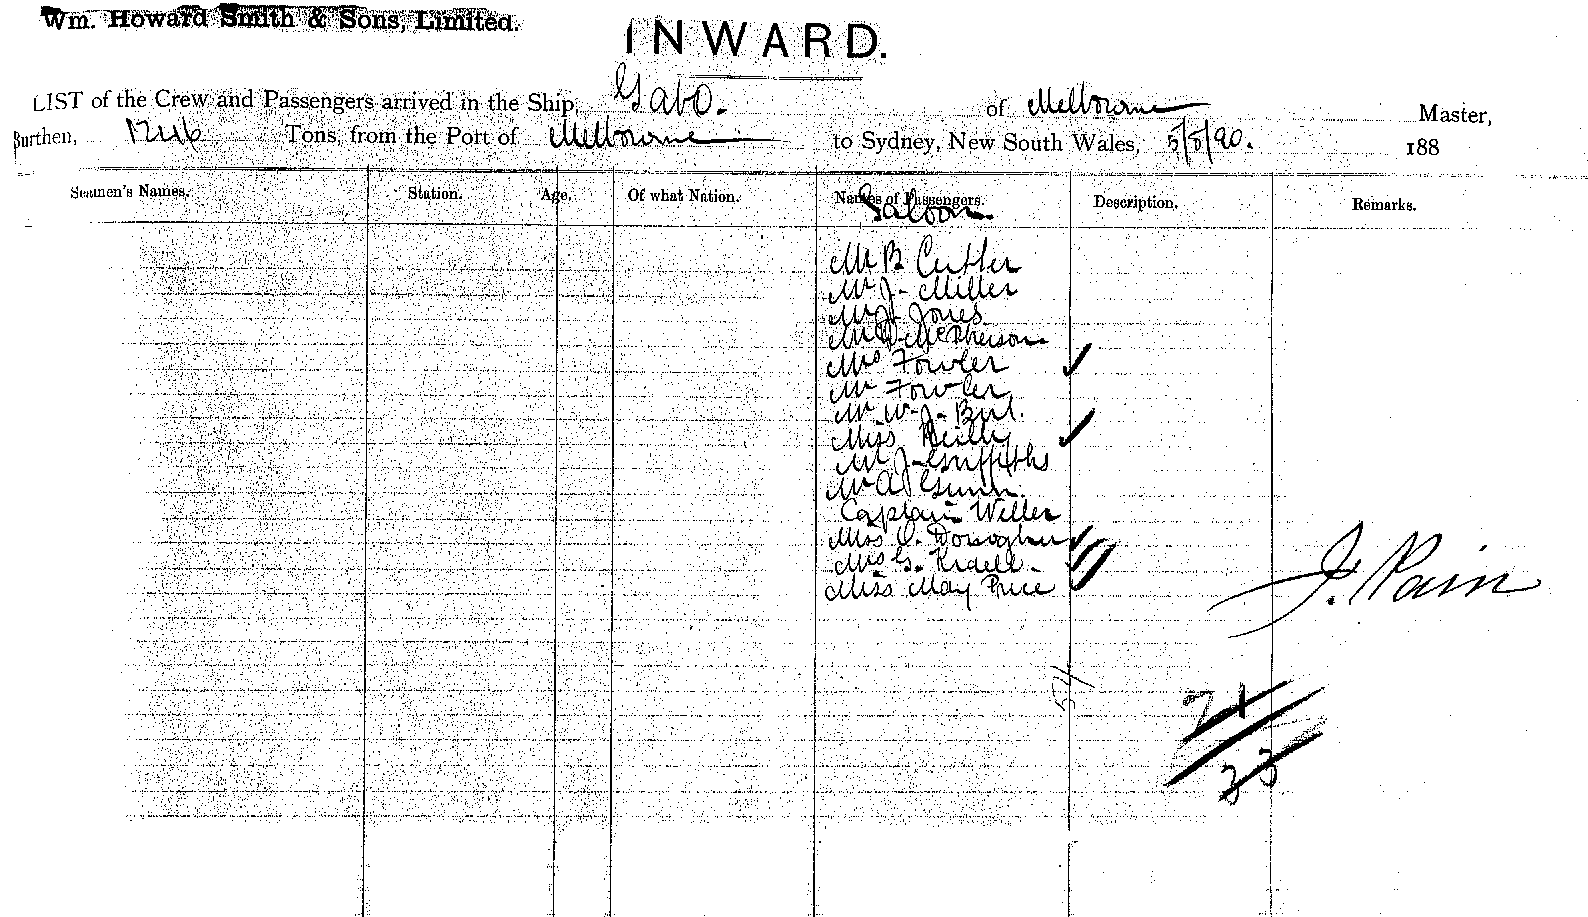 Wm. Howard Smith & Sons, Limited.
INWARD.
LIST of the Crew and Passengers arrived in the Ship, Gabo. of Melbourne Master,
Burthen, 1246 Tons, from the Port of Melbourne to Sydney, New South Wales, 5/8/90. 188
Seamen's Names. Station. Age. Of what Nation. Names of Passengers. Description. Remarks.
Saloon
Mr B Cutler
Mr J. Miller
Mr J. Jones
Mr D. McPherson
Mrs Fowler
Mr Fowler
Mr W. J.
Miss Reilly
Mr J. Griffiths
Mr A. Gunn
Captain Weller
Miss O. Donoghue
Mrs G.
Miss May Price
J. Pain
54
21
33